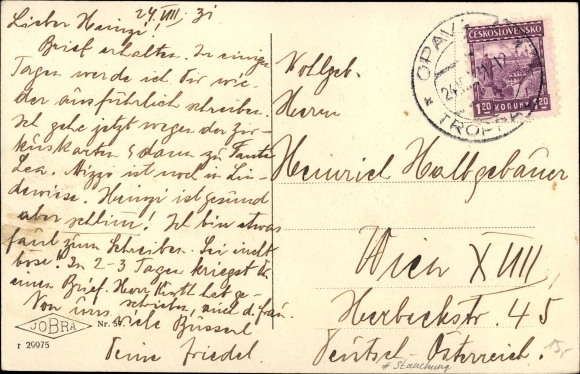 24. VIII. 31
Lieber Heinzi!
Brief erhalten. In einigen
Tagen werde ich Dir wie-
der ausführlich schreiben.
Ich gehe jetzt wegen der Zir-
kuskarten & dann zu Tante
Lea. Mizzi ist noch in Lin-
dewiese. Heinzi ist gesund
aber schlimm! Ich bin etwas
faul zum Schreiben. Sei nicht
böse! In 2-3 Tagen kriegst du
einen Brief. Herr Kurth hat ge-
schrieben, auch d. frau.
Von uns viele Busserl
Deine Friedel.
JOBRA
Nr. 57.
r 29975
ČESKOSLOVENSKO
1.20 KORUNY 1.20
OPAVA
TROPPAU
Wohlgeb.
Herrn
Heinrich Halbgebauer
Wien XVIII,
Herbeckstr. 45
Deutsch-Österreich.
# Stauchung